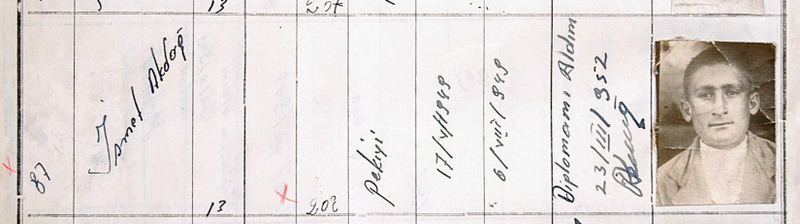 87
İsmet Akdağ
13
13
pekiyi
17/V/1949
6/VIII/949
Diplomamı Aldım
23/III/952